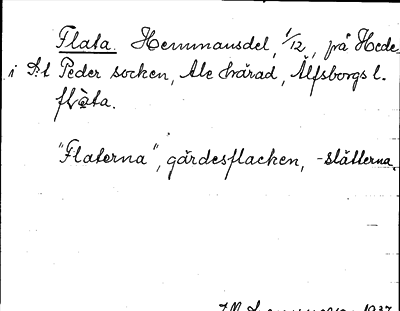 Flata. Hemmansdel, 1/12, på Hede-
i S:t Peder socken, Ale härad, Älfsborgs l.
flàta.
"Flaterna", gärdesflacken, -slätterna.
1937